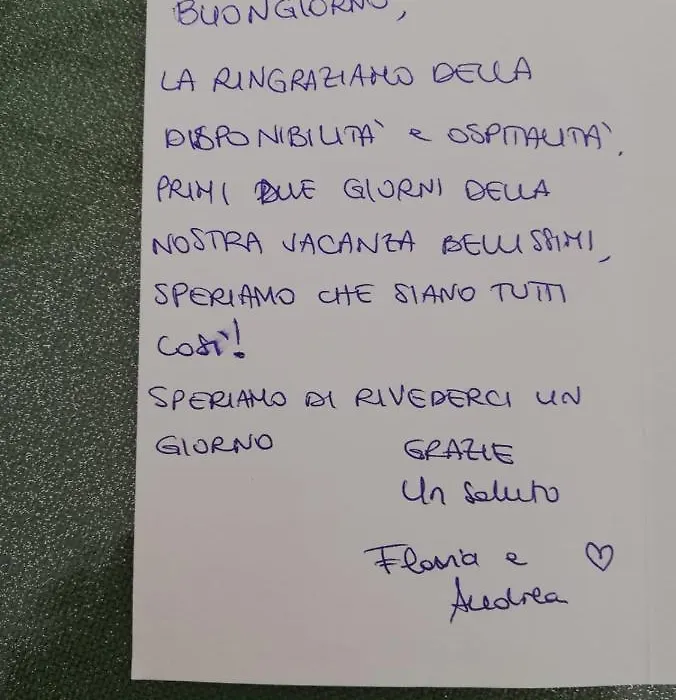 BUONGIORNO,
LA RINGRAZIAMO DELLA
DISPONIBILITA' e OSPITALITA'.
PRIMI DUE GIORNI DELLA
NOSTRA VACANZA BELLISSIMI,
SPERIAMO CHE SIANO TUTTI
COSI'!
SPERIAMO DI RIVEDERCI UN
GIORNO
GRAZIE
Un saluto
Flavia e
Andrea